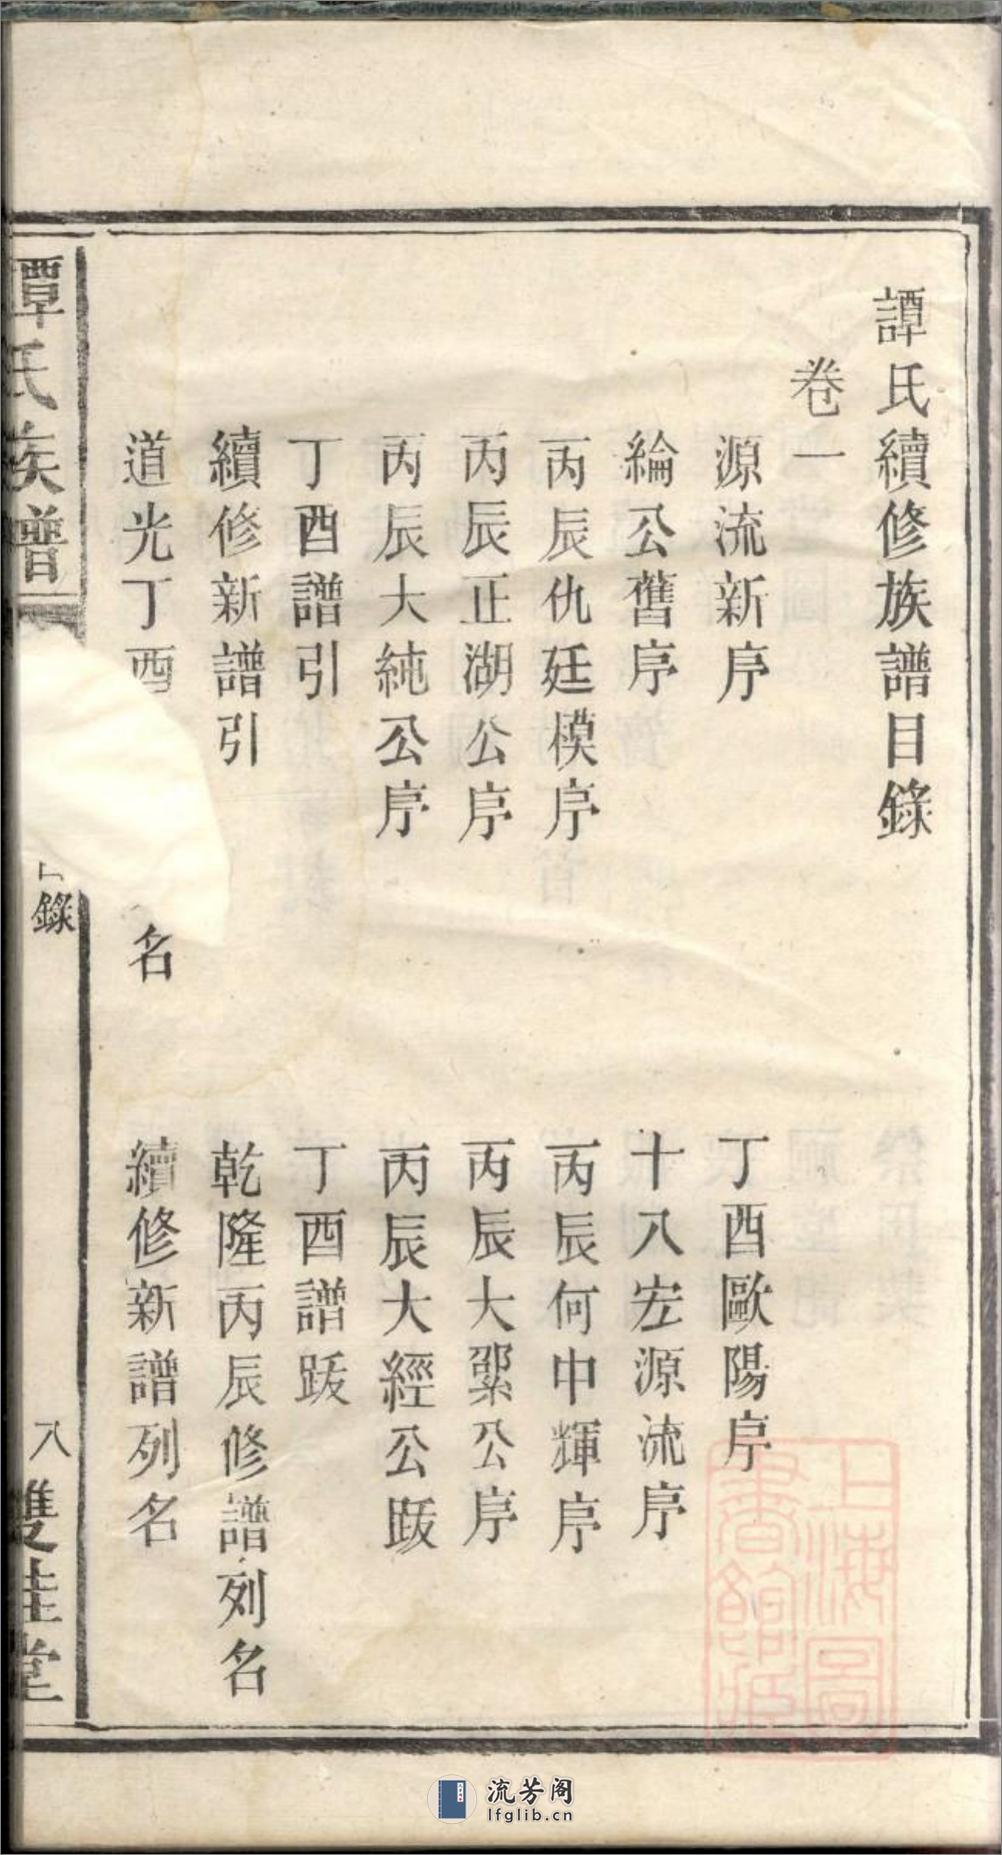 譚氏續修族譜目錄
卷一
源流新序 丁酉歐陽序
綸公舊序 十八宏源流序
丙辰仇廷模序 丙辰何中輝序
丙辰正湖公序 丙辰大寀公序
丙辰大純公序 丙辰大經公跋
丁酉譜引 丁酉譜跋
續修新譜引 乾隆丙辰修譜列名
道光丁酉 名 續修新譜列名
譚氏族譜
錄
八
雙桂堂
上海圖書館藏
流芳阁
lfglib.cn